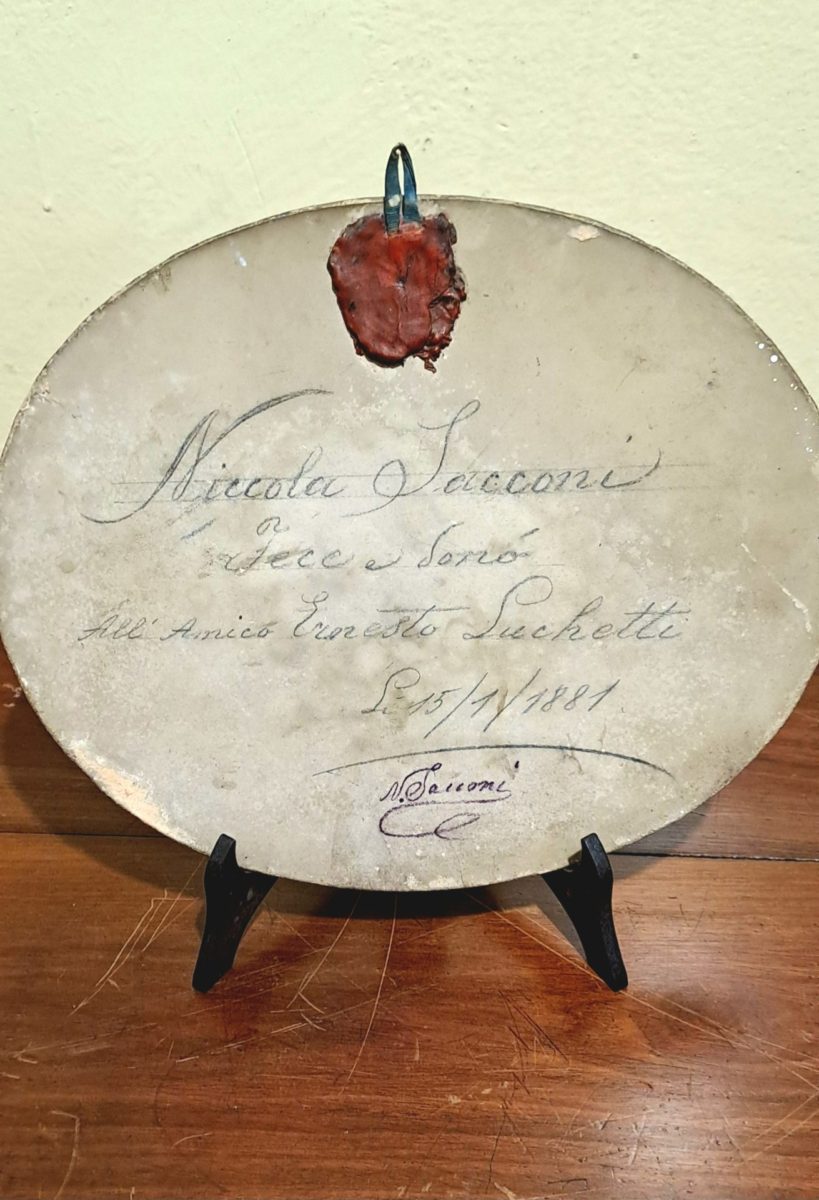 Niccola Sacconi
Fece e donó
All' Amico Ernesto Luchetti
Li 15/1/1881.
N. Sacconi